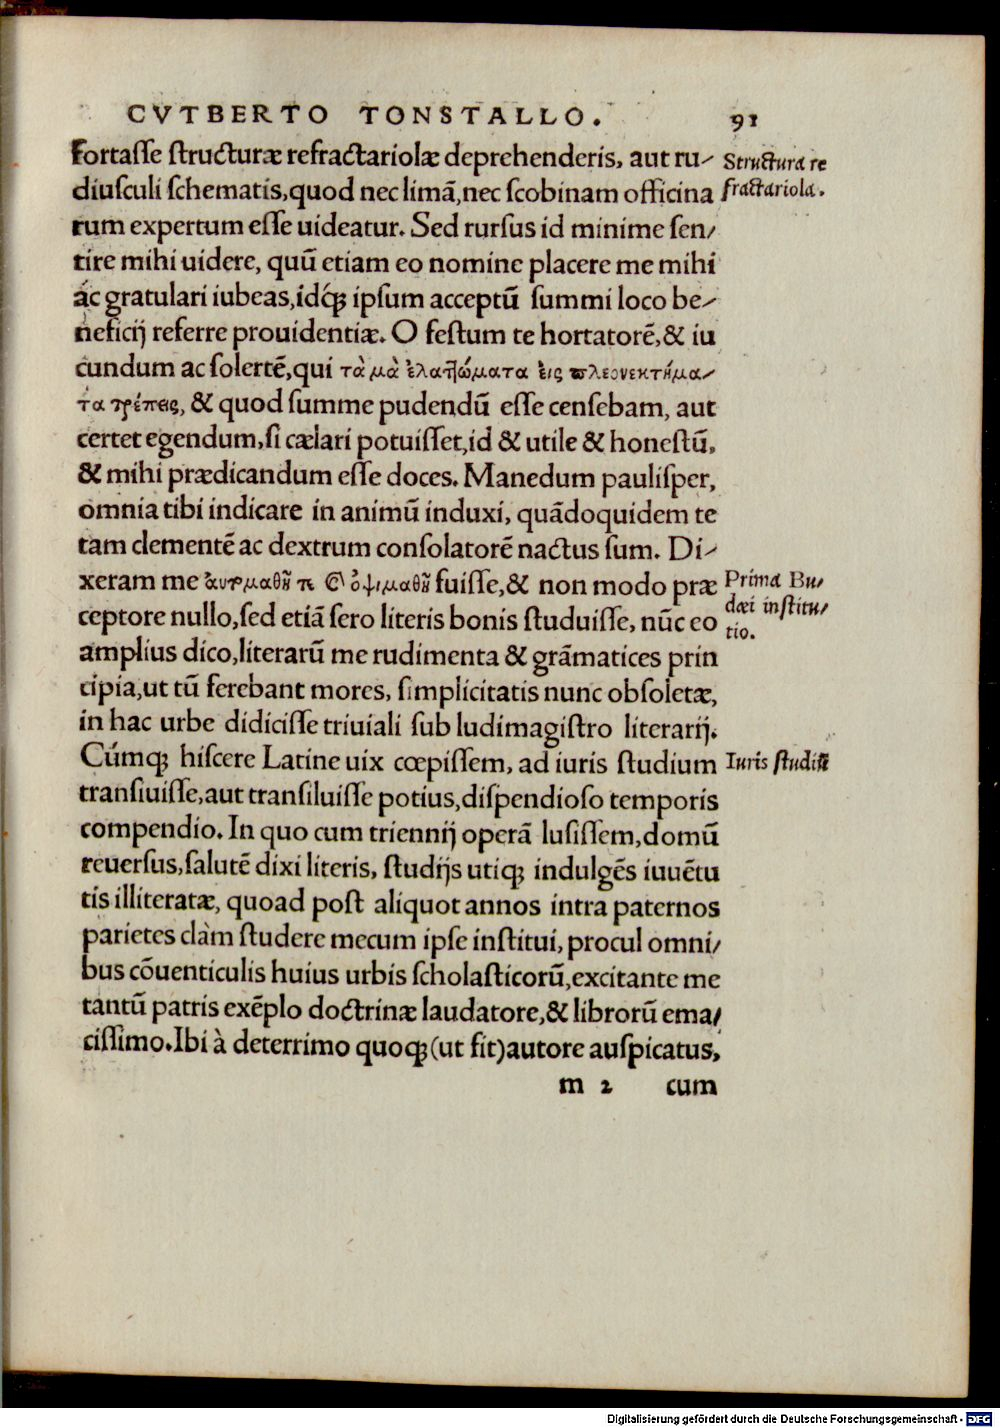 CVTBERTO TONSTALLO. 91
Fortasse structuræ refractariolæ deprehenderis, aut ru-
Structura re
diusculi schematis, quod nec limã, nec scobinam officina
fractariola.
rum expertum esse uideatur. Sed rursus id minime sen-
tire mihi uidere, quũ etiam eo nomine placere me mihi
ác gratulari iubeas, idq́; ipsum acceptũ summi loco be-
neficij referre prouidentiæ. O festum te hortatorẽ, & iu
cundum ac solertẽ, qui τὰ μὰ ἐλαττώματα εἰς πλεονεκτήμα-
τα τρέπεις, & quod summe pudendũ esse censebam, aut
certe tegendum, si cælari potuisset, id & utile & honestũ,
& mihi prædicandum esse doces. Manedum paulisper,
omnia tibi indicare in animũ induxi, quãdoquidem te
tam clementẽ ac dextrum consolatorẽ nactus sum. Di-
xeram me ἀυτομαθῆ τε καὶ ὀψιμαθῆ fuisse, & non modo præ
Prima Bu-
ceptore nullo, sed etiã sero literis bonis studuisse, nũc eo
dæi institu-
tio.
amplius dico, literarũ me rudimenta & grãmatices prin
cipia, ut tũ ferebant mores, simplicitatis nunc obsoletæ,
in hac urbe didicisse triuiali sub ludimagistro literarij.
Cúmq; hiscere Latine uix cœpissem, ad iuris studium
Iuris studiũ
transiuisse, aut transiluisse potius, dispendioso temporis
compendio. In quo cum triennij operã lusissem, domũ
reuersus, salutẽ dixi literis, studijs utiq; indulgẽs iuuẽtu
tis illiteratæ, quoad post aliquot annos intra paternos
parietes clàm studere mecum ipse institui, procul omni-
bus cõuenticulis huius urbis scholasticorũ, excitante me
tantũ patris exẽplo doctrinæ laudatore, & librorũ ema-
cissimo. Ibi à deterrimo quoq; (ut fit) autore auspicatus,
m 2 cum
Digitalisierung gefördert durch die Deutsche Forschungsgemeinschaft - DFG